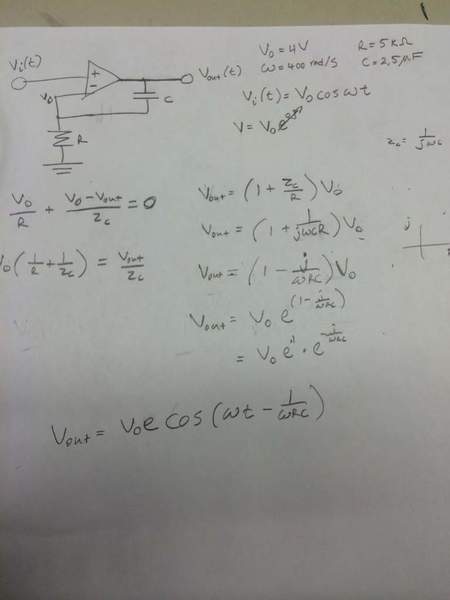 Vi(t)
+
-
Vout(t)
V0
C
R
V0 = 4V R = 5kΩ
ω = 400 rad/s C = 2,5μF
Vi(t) = V0 cos ωt
V = V0
Zc = 1/jωC
V0/R + (V0 - Vout)/Zc = 0
V0(1/R + 1/Zc) = Vout/Zc
Vout = (1 + Zc/R)V0
Vout = (1 + 1/jωCR)V0
j
Vout = (1 - j/ωRC)V0
Vout = V0 e^(1 - j/ωRC)
= V0 e^1 · e^-j/ωRC
Vout = V0 e cos(ωt - 1/ωRC)